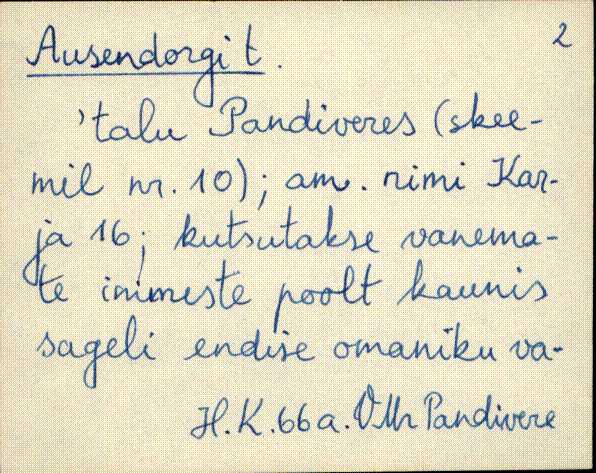 Ausendorgi t. 2
'talu Pandiveres (skee-
mil nr. 10); am. nimi Kar-
ja 16; kutsutakse vanema-
te inimeste poolt kaunis
sageli endise omaniku va-
H.K. 66a. VMr Pandivere